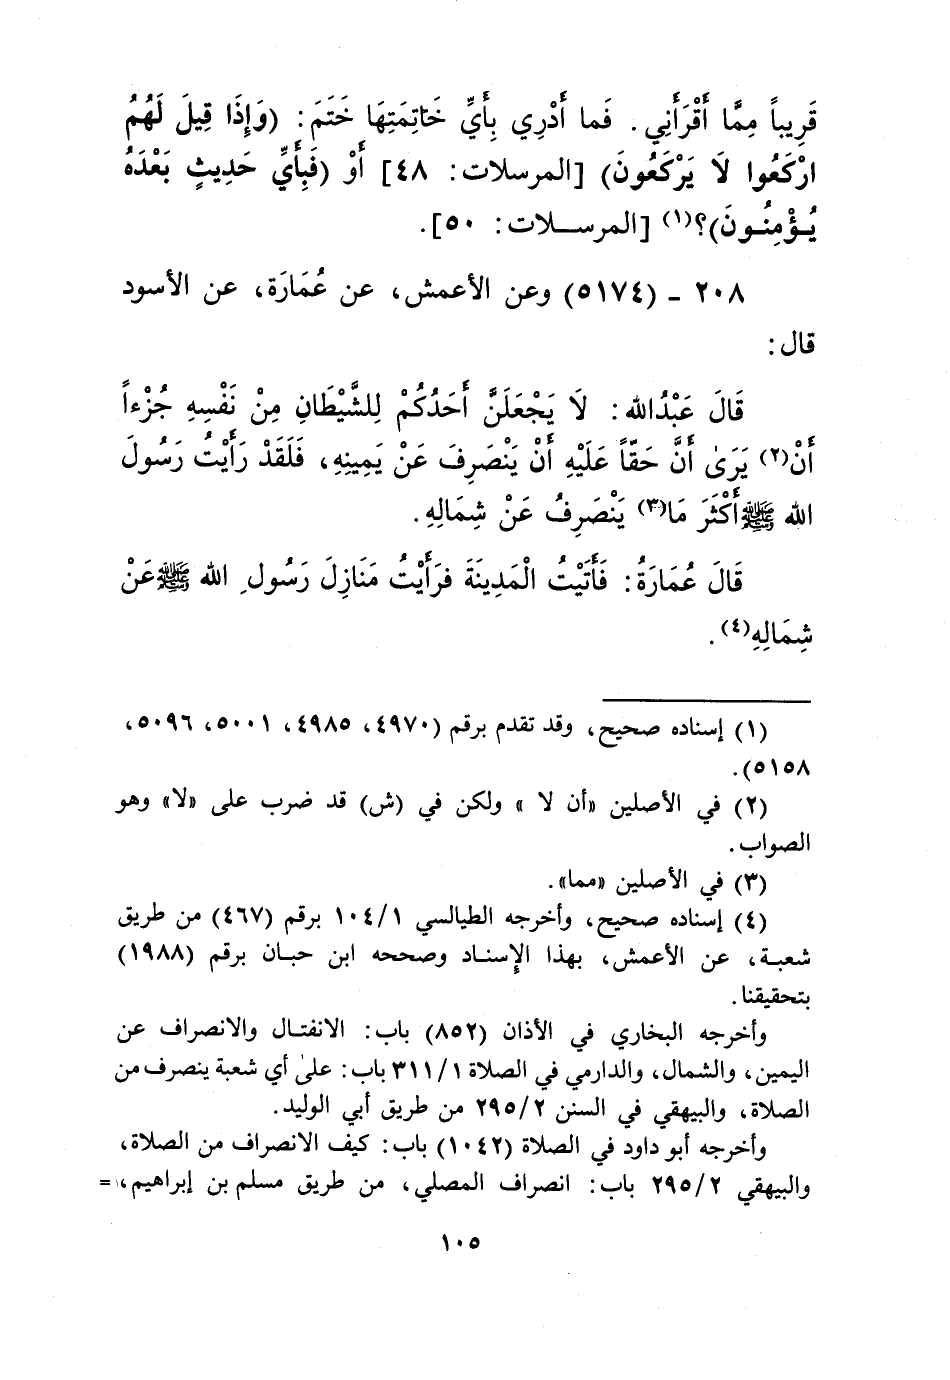 قَرِيباً مِمَّا أَقْرَأَنِي. فَما أَدْرِي بِأَيِّ خَاتِمَتِهَا خَتَمَ: (وَإِذَا قِيلَ لَهُمُ
ارْكَعُوا لَا يَرْكَعُونَ) [المرسلات: ٤٨] أَوْ (فَبِأَيِّ حَدِيثٍ بَعْدَهُ
يُـؤْمِنُـونَ)؟(١) [المرسـلات: ٥٠].
٢٠٨ ـ (٥١٧٤) وعن الأعمش، عن عُمَارَة، عن الأسود
قال:
قَالَ عَبْدُالله: لَا يَجْعَلَنَّ أَحَدُكُمْ لِلشَّيْطَانِ مِنْ نَفْسِهِ جُزْءاً
أَنْ(٢) يَرَىٰ أَنَّ حَقّاً عَلَيْهِ أَنْ يَنْصَرِفَ عَنْ يَمِينِهِ، فَلَقَدْ رَأَيْتُ رَسُولَ
الله ﷺ أَكْثَرَ مَا(٣) يَنْصَرِفُ عَنْ شِمَالِهِ.
قَالَ عُمَارَةُ: فَأَتَيْتُ الْمَدِينَةَ فَرَأَيْتُ مَنَازِلَ رَسُولِ الله ﷺ عَنْ
شِمَالِهِ(٤).
(١) إسناده صحيح، وقد تقدم برقم (٤٩٧٠، ٤٩٨٥، ٥٠٠١، ٥٠٩٦،
٥١٥٨).
(٢) في الأصلين «أن لا » ولكن في (ش) قد ضرب على «لا» وهو
الصواب.
(٣) في الأصلين «مما».
(٤) إسناده صحيح، وأخرجه الطيالسي ١٠٤/١ برقم (٤٦٧) من طريق
شعبـة، عن الأعمش، بهذا الإسنـاد وصححه ابن حبـان برقم (١٩٨٨)
بتحقيقنا.
وأخرجه البخاري في الأذان (٨٥٢) باب: الانفتـال والانصراف عن
اليمين، والشمال، والدارمي في الصلاة ٣١١/١ باب: علىٰ أي شعبة ينصرف من
الصلاة، والبيهقي في السنن ٢٩٥/٢ من طريق أبي الوليد.
وأخرجه أبو داود في الصلاة (١٠٤٢) باب: كيف الانصراف من الصلاة،
والبيهقي ٢٩٥/٢ باب: انصراف المصلي، من طريق مسلم بن إبراهيم، =
١٠٥